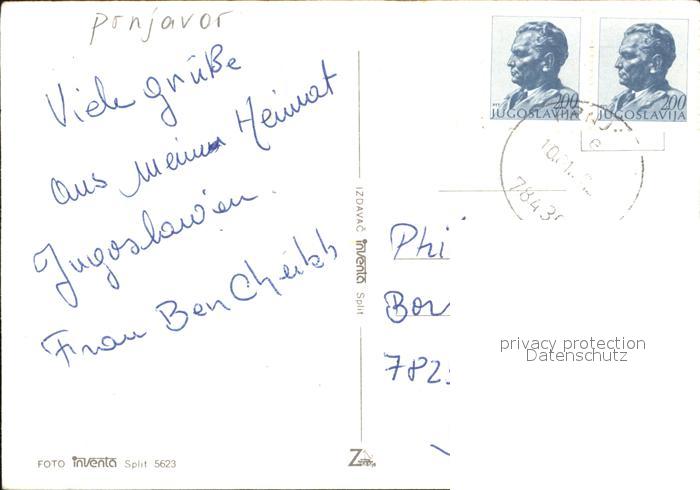 prnjavor
Viele grüße
aus meiner Heimat
Jugoslawien.
Frau Ben Cheikh
FOTO inventa Split 5623
IZDAVAČ inventa Split
2.00
JUGOSLAVIJA
2.00
JUGOSLAVIJA
10.01.
7843
Phi
Bor
782
privacy protection
Datenschutz